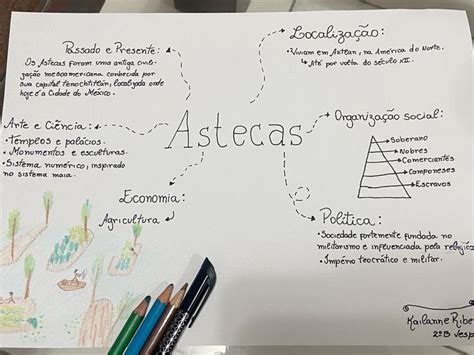 Passado e Presente:
Os Astecas foram uma antiga civili-
zação mesoamericana conhecida por
sua capital Tenochtitlán, localizada onde
hoje é a Cidade do México.
Localização:
• Viviam em Aztlan, na América do Norte.
Até por volta do século XII.
Arte e Ciência:
• Templos e palácios.
• Monumentos e esculturas.
• Sistema numérico, inspirado
no sistema maia.
Astecas
Organização social:
Soberano
Nobres
Comerciantes
Camponeses
Escravos
Economia:
Agricultura
Política:
• Sociedade fortemente fundada no
militarismo e influenciada pela
• Império teocrático e militar.
Kailanne Ribe
2ºB Vesp